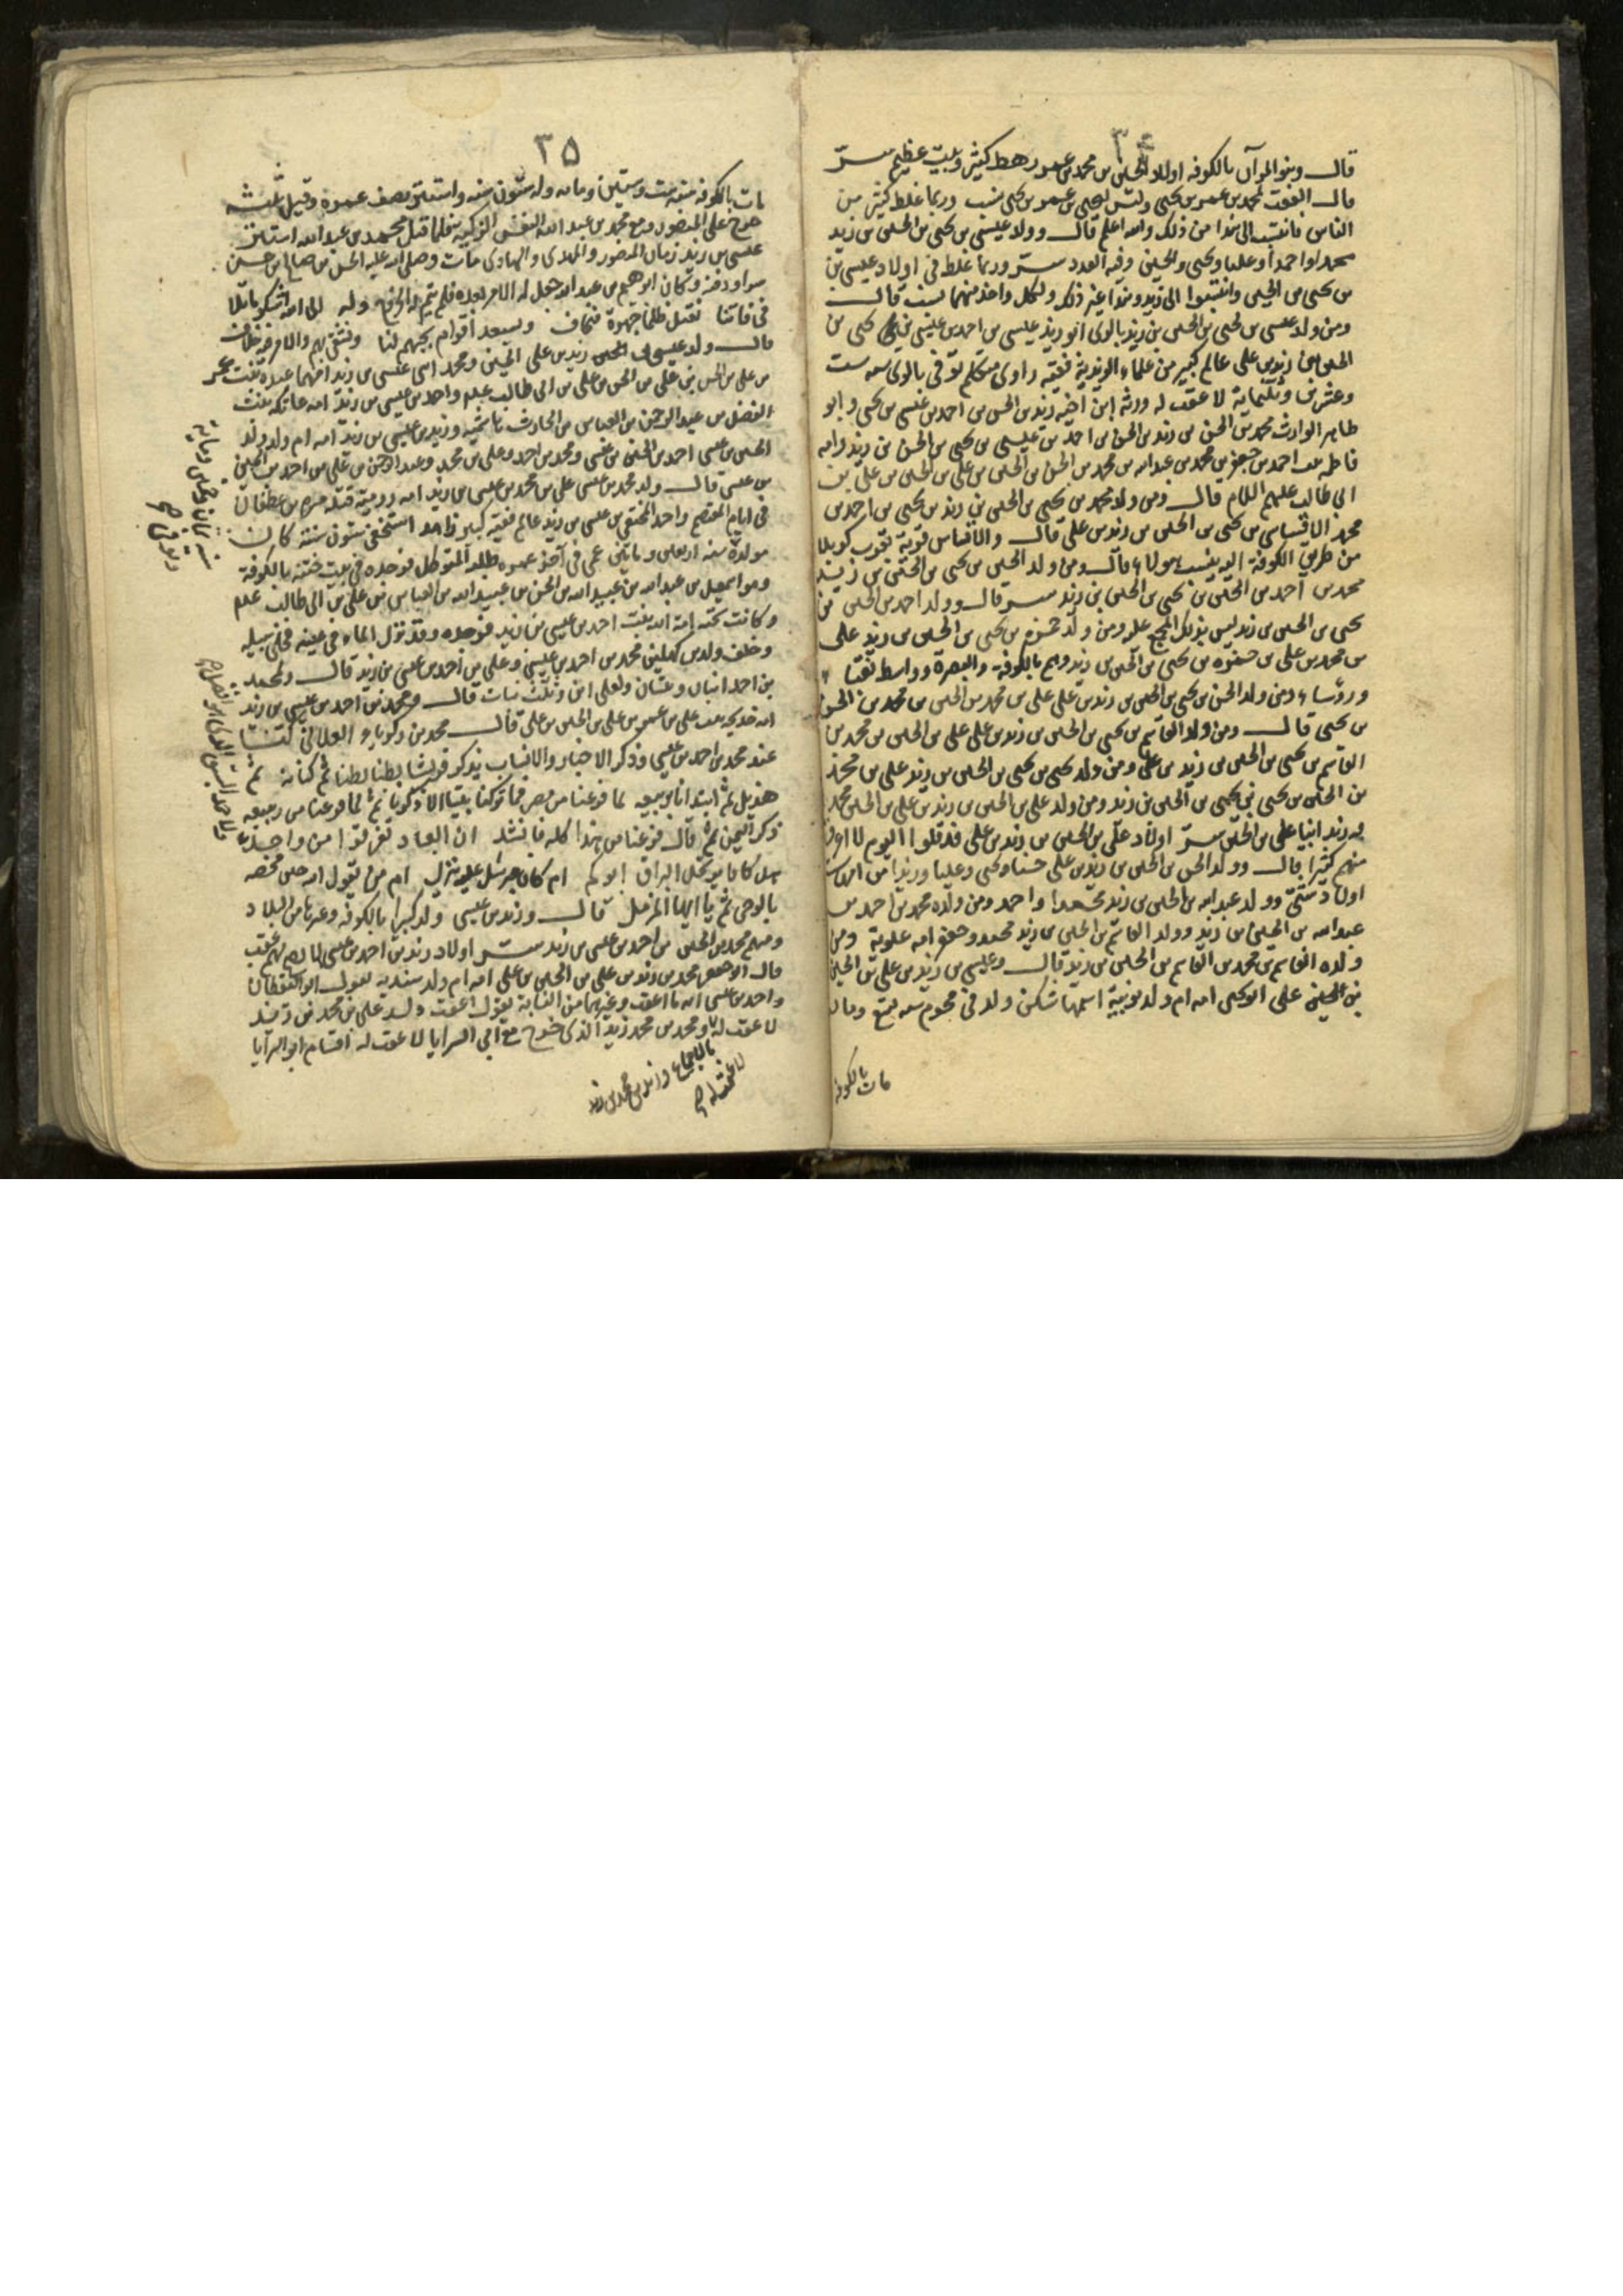 ٣٤
قال وبنو المرآن بالكوفه اولاد الحسين بن محمد بن عمر رهط كثير وبيت عظيم
قال العقب لمحمد بن عمر بن يحيى وليس ليحيى بن عمر بن يحيى عقب وربما غلط كثير من
الناس فانتسب الى هذا من ذلك والله اعلم قال وولد عيسى بن يحيى بن الحسين بن زيد
محمدا واحمدا وعليا ويحيى والحسين وفيه العدد وربما غلط في اولاد عيسى بن
بن يحيى بن الحسين وانتسبوا الى زيد وهذا غير ذلك ولكل واحد منهما نسب قال
ومن ولد عيسى بن يحيى بن الحسين بن زيد بالري ابو زيد عيسى بن احمد بن عيسى بن يحيى بن
الحسين بن زيد بن علي عالم كبير من علماء الزيدية فقيه راوي متكلم توفي بالري سنه ست
وعشرين وثلثمائة لا عقب له ورثه ابن اخيه زيد بن الحسن بن احمد بن عيسى بن يحيى وابو
طاهر الوارث محمد بن الحسن بن زيد بن الحسن بن احمد بن عيسى بن يحيى بن الحسين بن زيد وامه
فاطمه بنت احمد بن جعفر بن محمد بن عبدالله بن محمد بن الحسن بن الحسين بن علي بن الحسين بن علي بن
ابي طالب عليهم السلام قال ومن ولد محمد بن يحيى بن الحسين بن زيد بن يحيى بن احمد بن
محمد الاقساسي بن يحيى بن الحسين بن زيد بن علي قال والاقساس قرية بقرب كربلا
من طريق الكوفة اليه ينسب هولاء قال ومن ولد الحسن بن يحيى بن الحسين بن زيد
محمد بن احمد بن الحسين بن يحيى بن الحسين بن زيد قال وولد احمد بن الحسين بن
يحيى بن الحسين بن زيد ليس بذلك المجمع عليه ومن ولد حمزه بن يحيى بن الحسين بن زيد علي
بن محمد بن علي بن حمزه بن يحيى بن الحسين بن زيد وهم بالكوفة والبصرة وواسط نقبا
ورؤساء ومن ولد الحسن بن يحيى بن الحسين بن زيد بن علي علي بن محمد بن الحسين بن محمد بن الحسن
بن يحيى قال ومن ولد القاسم بن يحيى بن الحسين بن زيد بن علي علي بن الحسين بن محمد بن
القاسم بن يحيى بن الحسين بن زيد بن علي ومن ولد يحيى بن يحيى بن الحسين بن زيد علي بن محمد
بن الحسين بن يحيى بن يحيى بن الحسين بن زيد ومن ولد علي بن الحسين بن زيد بن علي بن الحسين محمد
اولاد علي بن الحسين بن زيد بن علي قد قلوا اليوم
منهم كثيرا قال وولد الحسن بن الحسين بن زيد بن علي حسنا ويحيى وعليا وزيدا من امهات
اولاد شتى وولد عبدالله بن الحسين بن زيد محمدا واحمد ومن ولده محمد بن احمد بن
عبدالله بن الحسين بن زيد وولد القاسم بن الحسين بن زيد محمد وجعفر امه علوية ومن
ولده القاسم بن محمد بن القاسم بن الحسين بن زيد قال وعيسى بن زيد بن علي بن الحسين
بن الحسين علي ابو يحيى امه ام ولد نوبية اسمها سكن ولد في محرم سنه تسع وماه
مات بالكوفه
٣٥
مات بالكوفه سنه ست وستين وماه وله ستون سنه واستتر نصف عمره وقيل ثلثه
خرج على المنصور مع محمد بن عبد الله النفس الزكيه فلما قتل محمد بن عبدالله استتر
عيسى بن زيد زمان المنصور والمهدي والهادي مات وصلى عليه الحسن بن صالح بن حسن
سرا ودفنه وكان ابراهيم بن عبد الله جعل له الامر بعده فلم يتم له الخروج وله الى الله اشكو
في فاتنا نقتل ظلما جهرة فنخاف ويسعد اقوام بحبهم لنا ونشقى بهم والامر فيه خلاف
قال ولد عيسى بن زيد بن علي الحسين ومحمد ابني عيسى بن زيد امهما عبده بنت عمر
بن علي بن الحسن بن علي بن الحسن بن علي بن ابي طالب عليهم واحمد بن عيسى بن زيد امه عاتكه بنت
الفضل بن عبد الرحمن بن العباس بن الحارث هاشمية وزيد بن عيسى بن زيد امه ام ولد
الحسين بن عيسى احمد بن الحسين بن عيسى ومحمد بن احمد وعلي بن محمد وعبد الرحمن بن علي بن احمد بن الحسين
بن عيسى قال ولد محمد بن عيسى علي بن محمد بن عيسى بن زيد امه روميه قتله مره بن غطفان
في ايام المعتصم واحمد المختفي بن عيسى بن زيد عالم فقيه كبير زاهد استخفى ستون سنة كان
مولده سنه اربعين ومائتين عمي في آخر عمره طلبه المتوكل فوجده في بيت ختنه بالكوفة
وهو اسمعيل بن عبدالله بن عبيد الله بن الحسن بن عبيد الله بن العباس بن علي بن ابي طالب عليهم
وكانت تحته امة الله بنت احمد بن عيسى بن زيد فوجده وقد نزل الماء في عينه فخلى سبيله
وخلف ولدين كهلين محمد بن احمد بن عيسى وعلي بن احمد بن عيسى بن زيد قال ولمحمد
بن احمد ابنان وبنتان ولعلي ابن وثلث بنات قال ومحمد بن احمد بن عيسى بن زيد
امه خديجه بنت علي بن عمر بن علي بن الحسين بن علي قال محمد بن زكرياء الغلابي كنا
عند محمد بن احمد بن عيسى وذكر الاخبار والانساب يذكر قريشا بطنا بطنا ثم كنانة ثم
هذيل ثم ابتدانا بربيعه لما فرغنا من مضر فما تركنا بقيتا الا ذكرنا ثم لما فرغنا من ربيعه
ذكر اليمن ثم قال فرغنا من هذا كله فانشد ان العباد تفرقوا من واحد
هل كان يرتحل البراق ابوكم ام كان جبرئيل عليه ينزل ام من يقول الله حين يخصه
بالوحي ثم يا ايها المزمل قال وزيد بن عيسى ولد كبيرا بالكوفه وغيرها من البلاد
ومنهم محمد بن الحسن بن احمد بن عيسى بن زيد اولاد زيد بن احمد بن عيسى
قال ابو جعفر محمد بن زيد بن علي بن الحسين بن علي امه ام ولد سنديه يقول ابو اليقظان
واحمد بن عيسى انه ما اعقب وغيرهما من النسابة يقول اعقب ولد علي بن محمد بن زيد
لا عقب له ومحمد بن محمد زيد الذي خرج مع ابي السرايا لا عقب له اقسام ابو السرايا
بالاجماع وزيد بن محمد بن زيد
لا عقب له